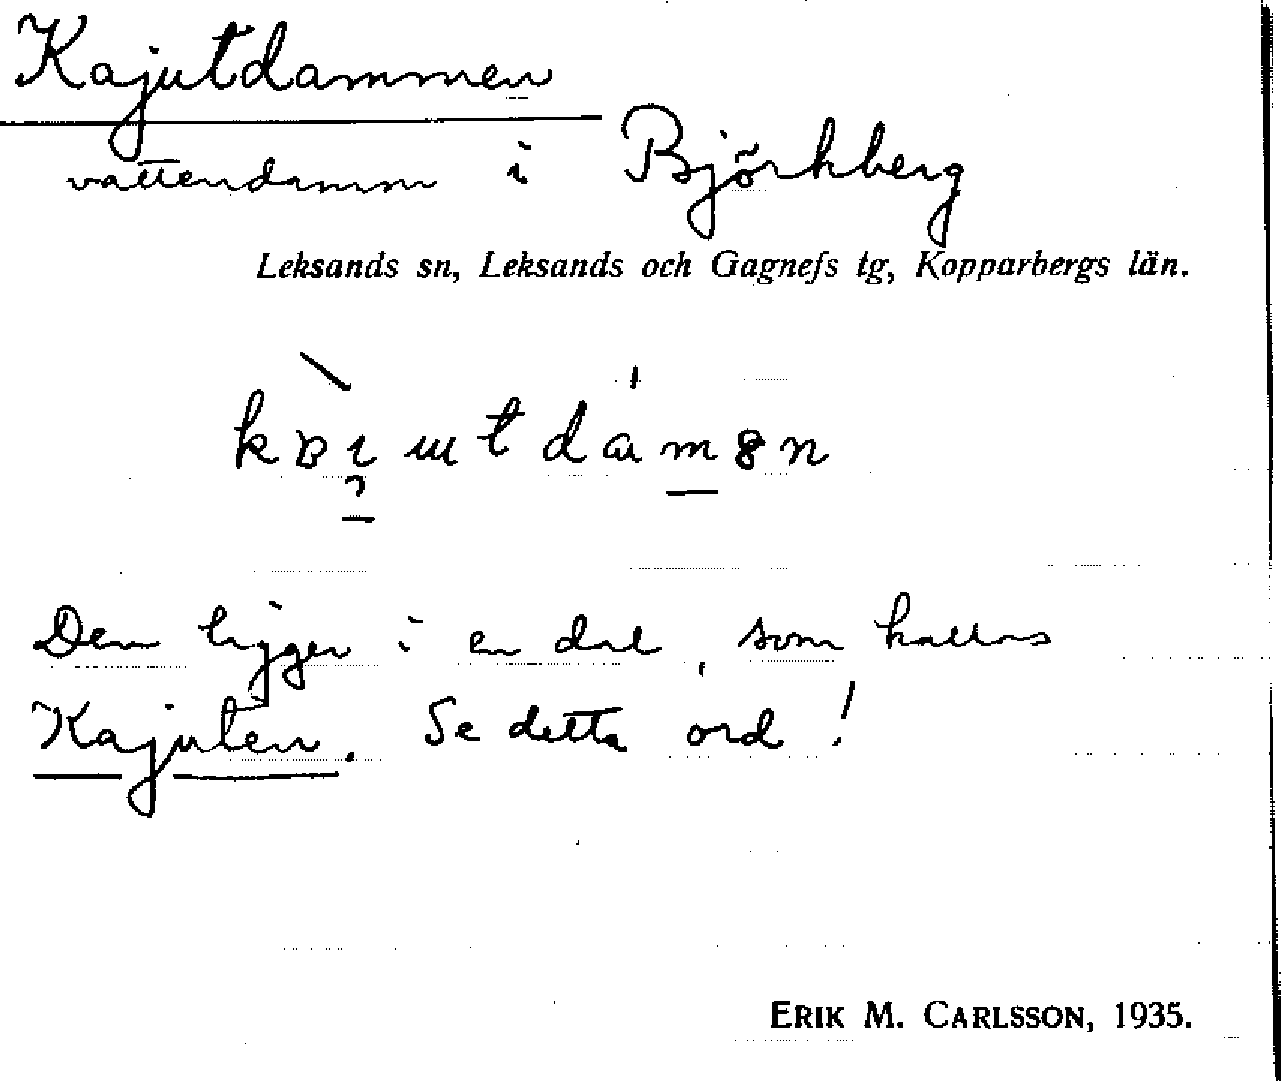 Kajutdammen
vattendamm i Björkberg
Leksands sn, Leksands och Gagnefs tg, Kopparbergs län.
Den ligger i en dal, som kallas
Kajuten. Se detta ord!
ERIK M. CARLSSON, 1935.